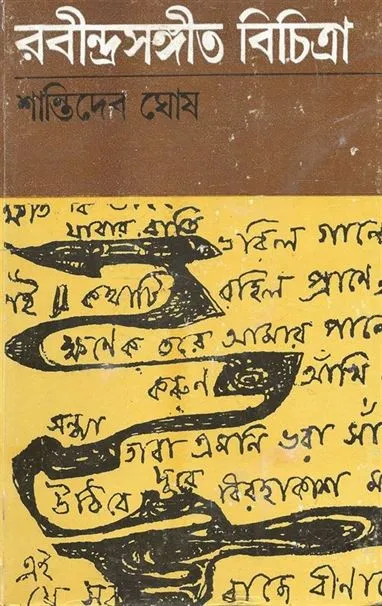 রবীন্দ্রসঙ্গীত বিচিত্রা
শান্তিদেব ঘোষ
যাবার রাতি
ভরিল গানে
এই কথাটি রহিল প্রাণে
ক্ষণেক তরে আমার পানে
করুণ আঁখি
সন্ধ্যা
তারা এমনি ভরা সাঁ
উঠিবে দূরে বিরহাকাশ
এই
যে সব বাজে বীণা